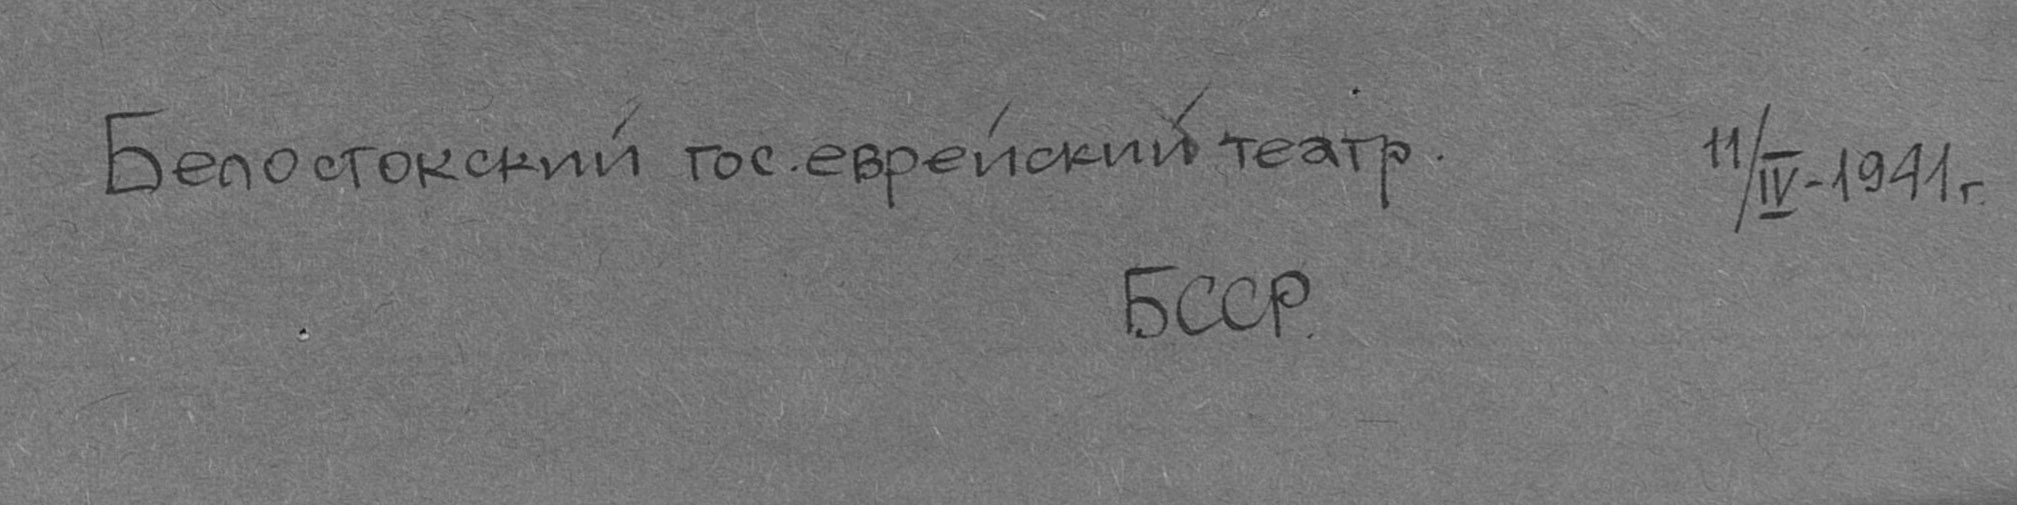 Белостокский гос. еврейский театр. 11/IV-1941г.
БССР.